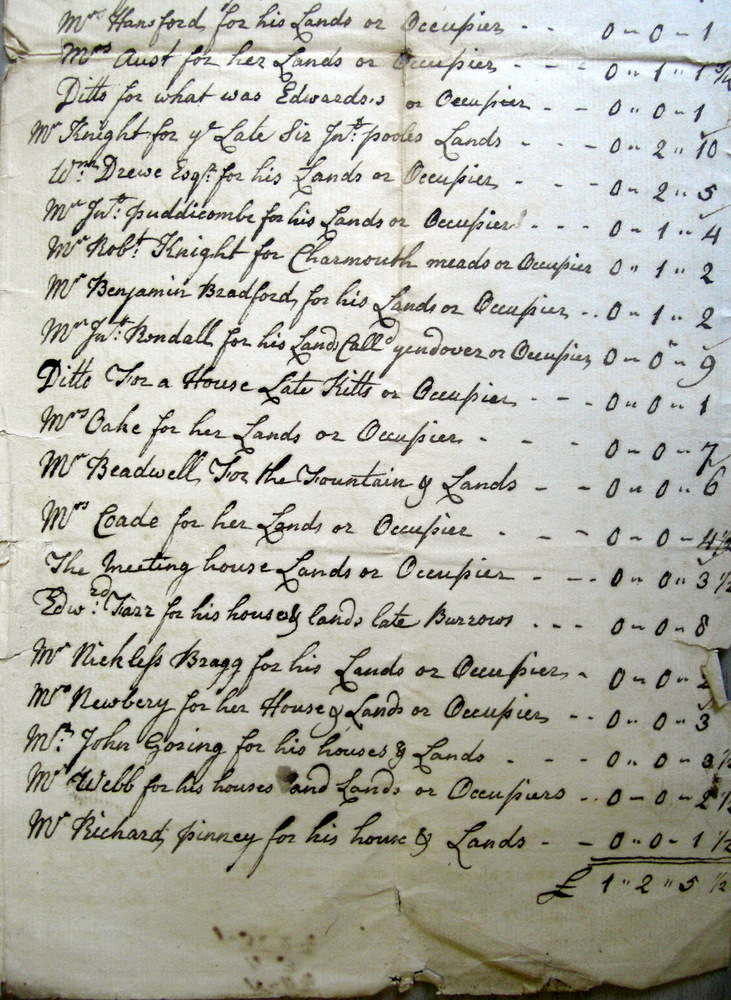 Mr Hansford for his Lands or Occupier - - 0 - 0 - 1
Mrs Aust for her Lands or Occupier - - - 0 " 1 " 1
Ditto for what was Edwards's or Occupier - - 0 " 0 " 1
Mr Knight for ye Late Sir Jno: pooles Lands - - - 0 - 2 " 10
Wm: Drewe Esqr: for his Lands or Occupier - - - 0 - 2 " 5
Mr Jno: puddicombe for his Lands or Occupier - - - 0 - 1 " 4
Mr Robt: Knight for Charmouth meads or Occupier 0 " 1 " 2
Mr Benjamin Bradford, for his Lands or Occupier - - 0 - 1 - 2
Mr Jno: Rendall for his Lands Calld yendover or Occupier 0 - 0 " 9
Ditto For a House Late Kitts or Occupier - - - 0 " 0 - 1
Mrs Oake for her Lands or Occupier - - - 0 - 0 - 7
Mr Beadwell For the Fountain & Lands - - 0 - 0 - 6
Mrs Coade for her Lands or Occupier - - - 0 - 0 - 4 1/2
The Meeting house Lands or Occupier - - - 0 - 0 - 3 1/2
Edwrd: Farr for his house & lands late Burrows - - - 0 - 0 - 8
Mr Nickless Bragg for his Lands or Occupier - 0 - 0 -
Mrs Newbery for her House & Lands or Occupier - - 0 - 0 - 3
Mr: John Goring for his houses & Lands - - - 0 " 0 - 3 1/2
Mr Webb for his houses and Lands or Occupiers - - 0 - 0 - 2 1/2
Mr Richard pinney for his house & Lands - - 0 - 0 - 1 1/2
£ 1 " 2 " 5 1/2